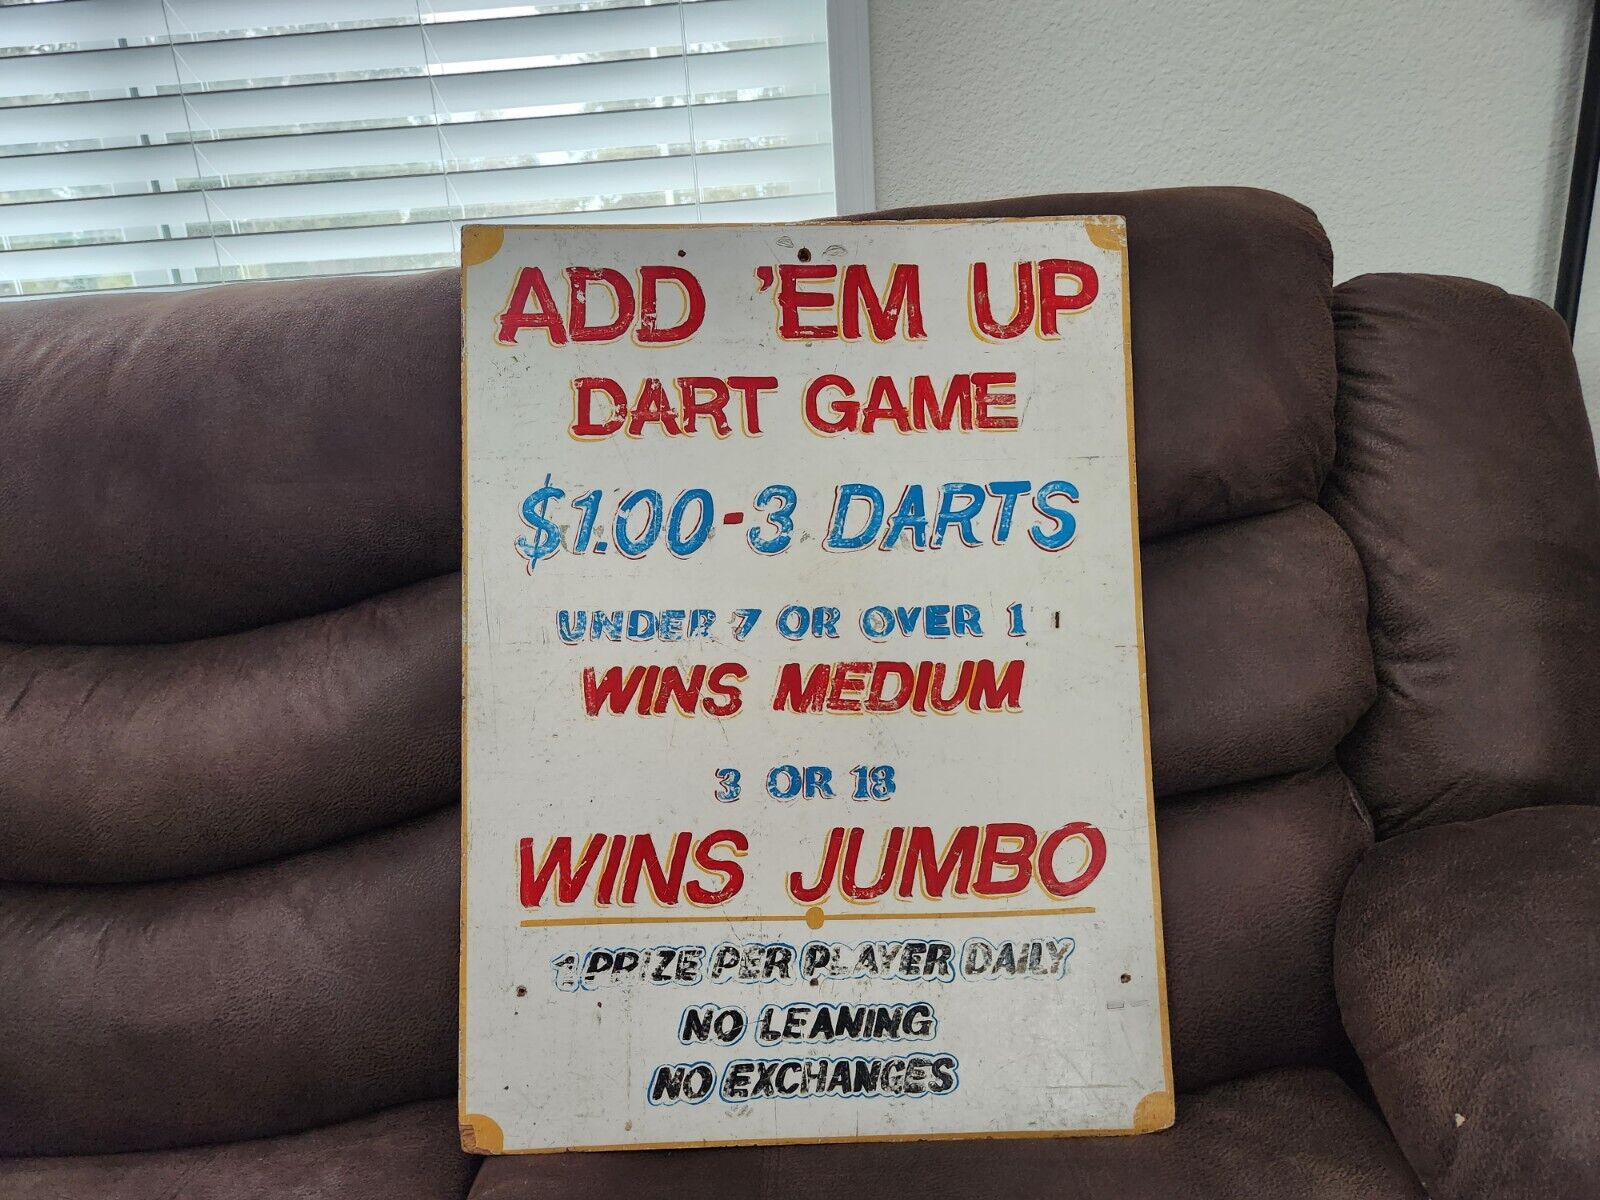 ADD 'EM UP
DART GAME
$1.00-3 DARTS
UNDER 7 OR OVER 1
WINS MEDIUM
3 OR 18
WINS JUMBO
1 PRIZE PER PLAYER DAILY
NO LEANING
NO EXCHANGES